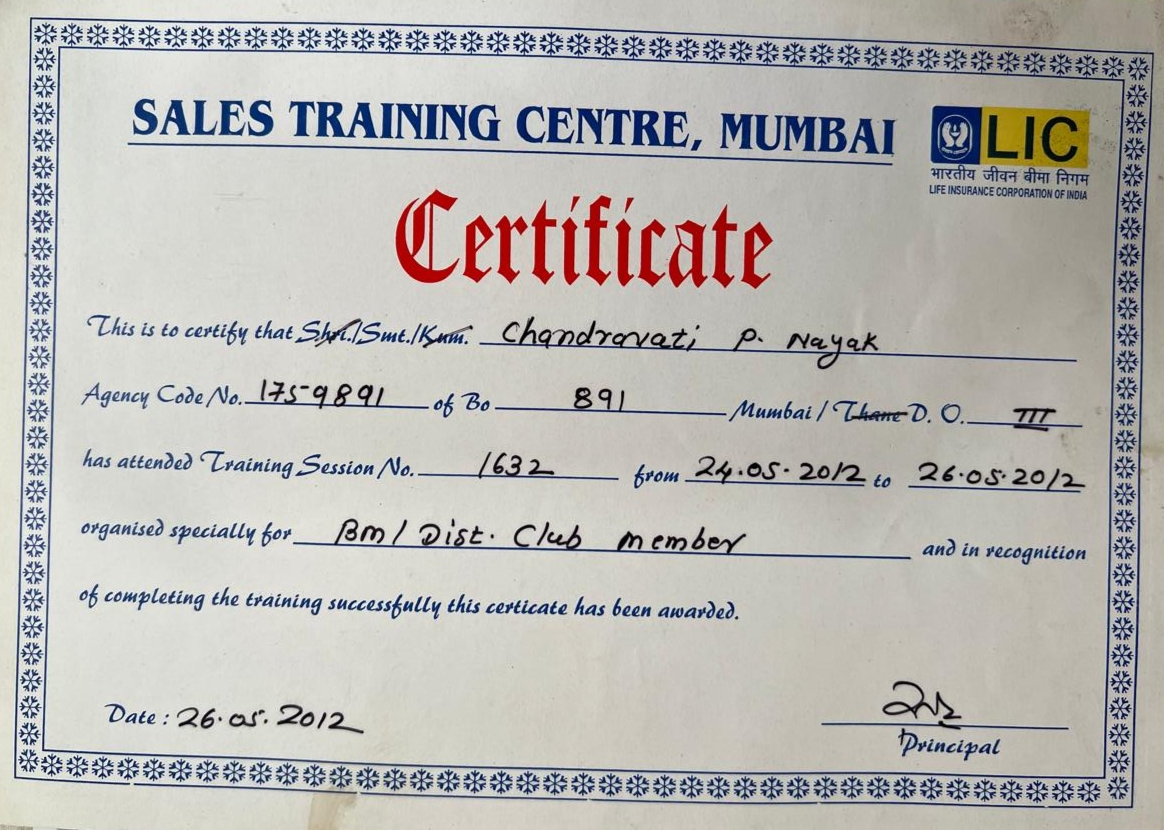 SALES TRAINING CENTRE, MUMBAI
LIC
भारतीय जीवन बीमा निगम
LIFE INSURANCE CORPORATION OF INDIA
Certificate
This is to certify that Shri./Smt./Kum. Chandravati P. Nayak
Agency Code No. 1759891 of Bo 891 Mumbai / Thane D. O. III
has attended Training Session No. 1632 from 24.05.2012 to 26.05.2012
organised specially for BM/ Dist. Club member and in recognition
of completing the training successfully this certicate has been awarded.
Date : 26.05.2012
Principal